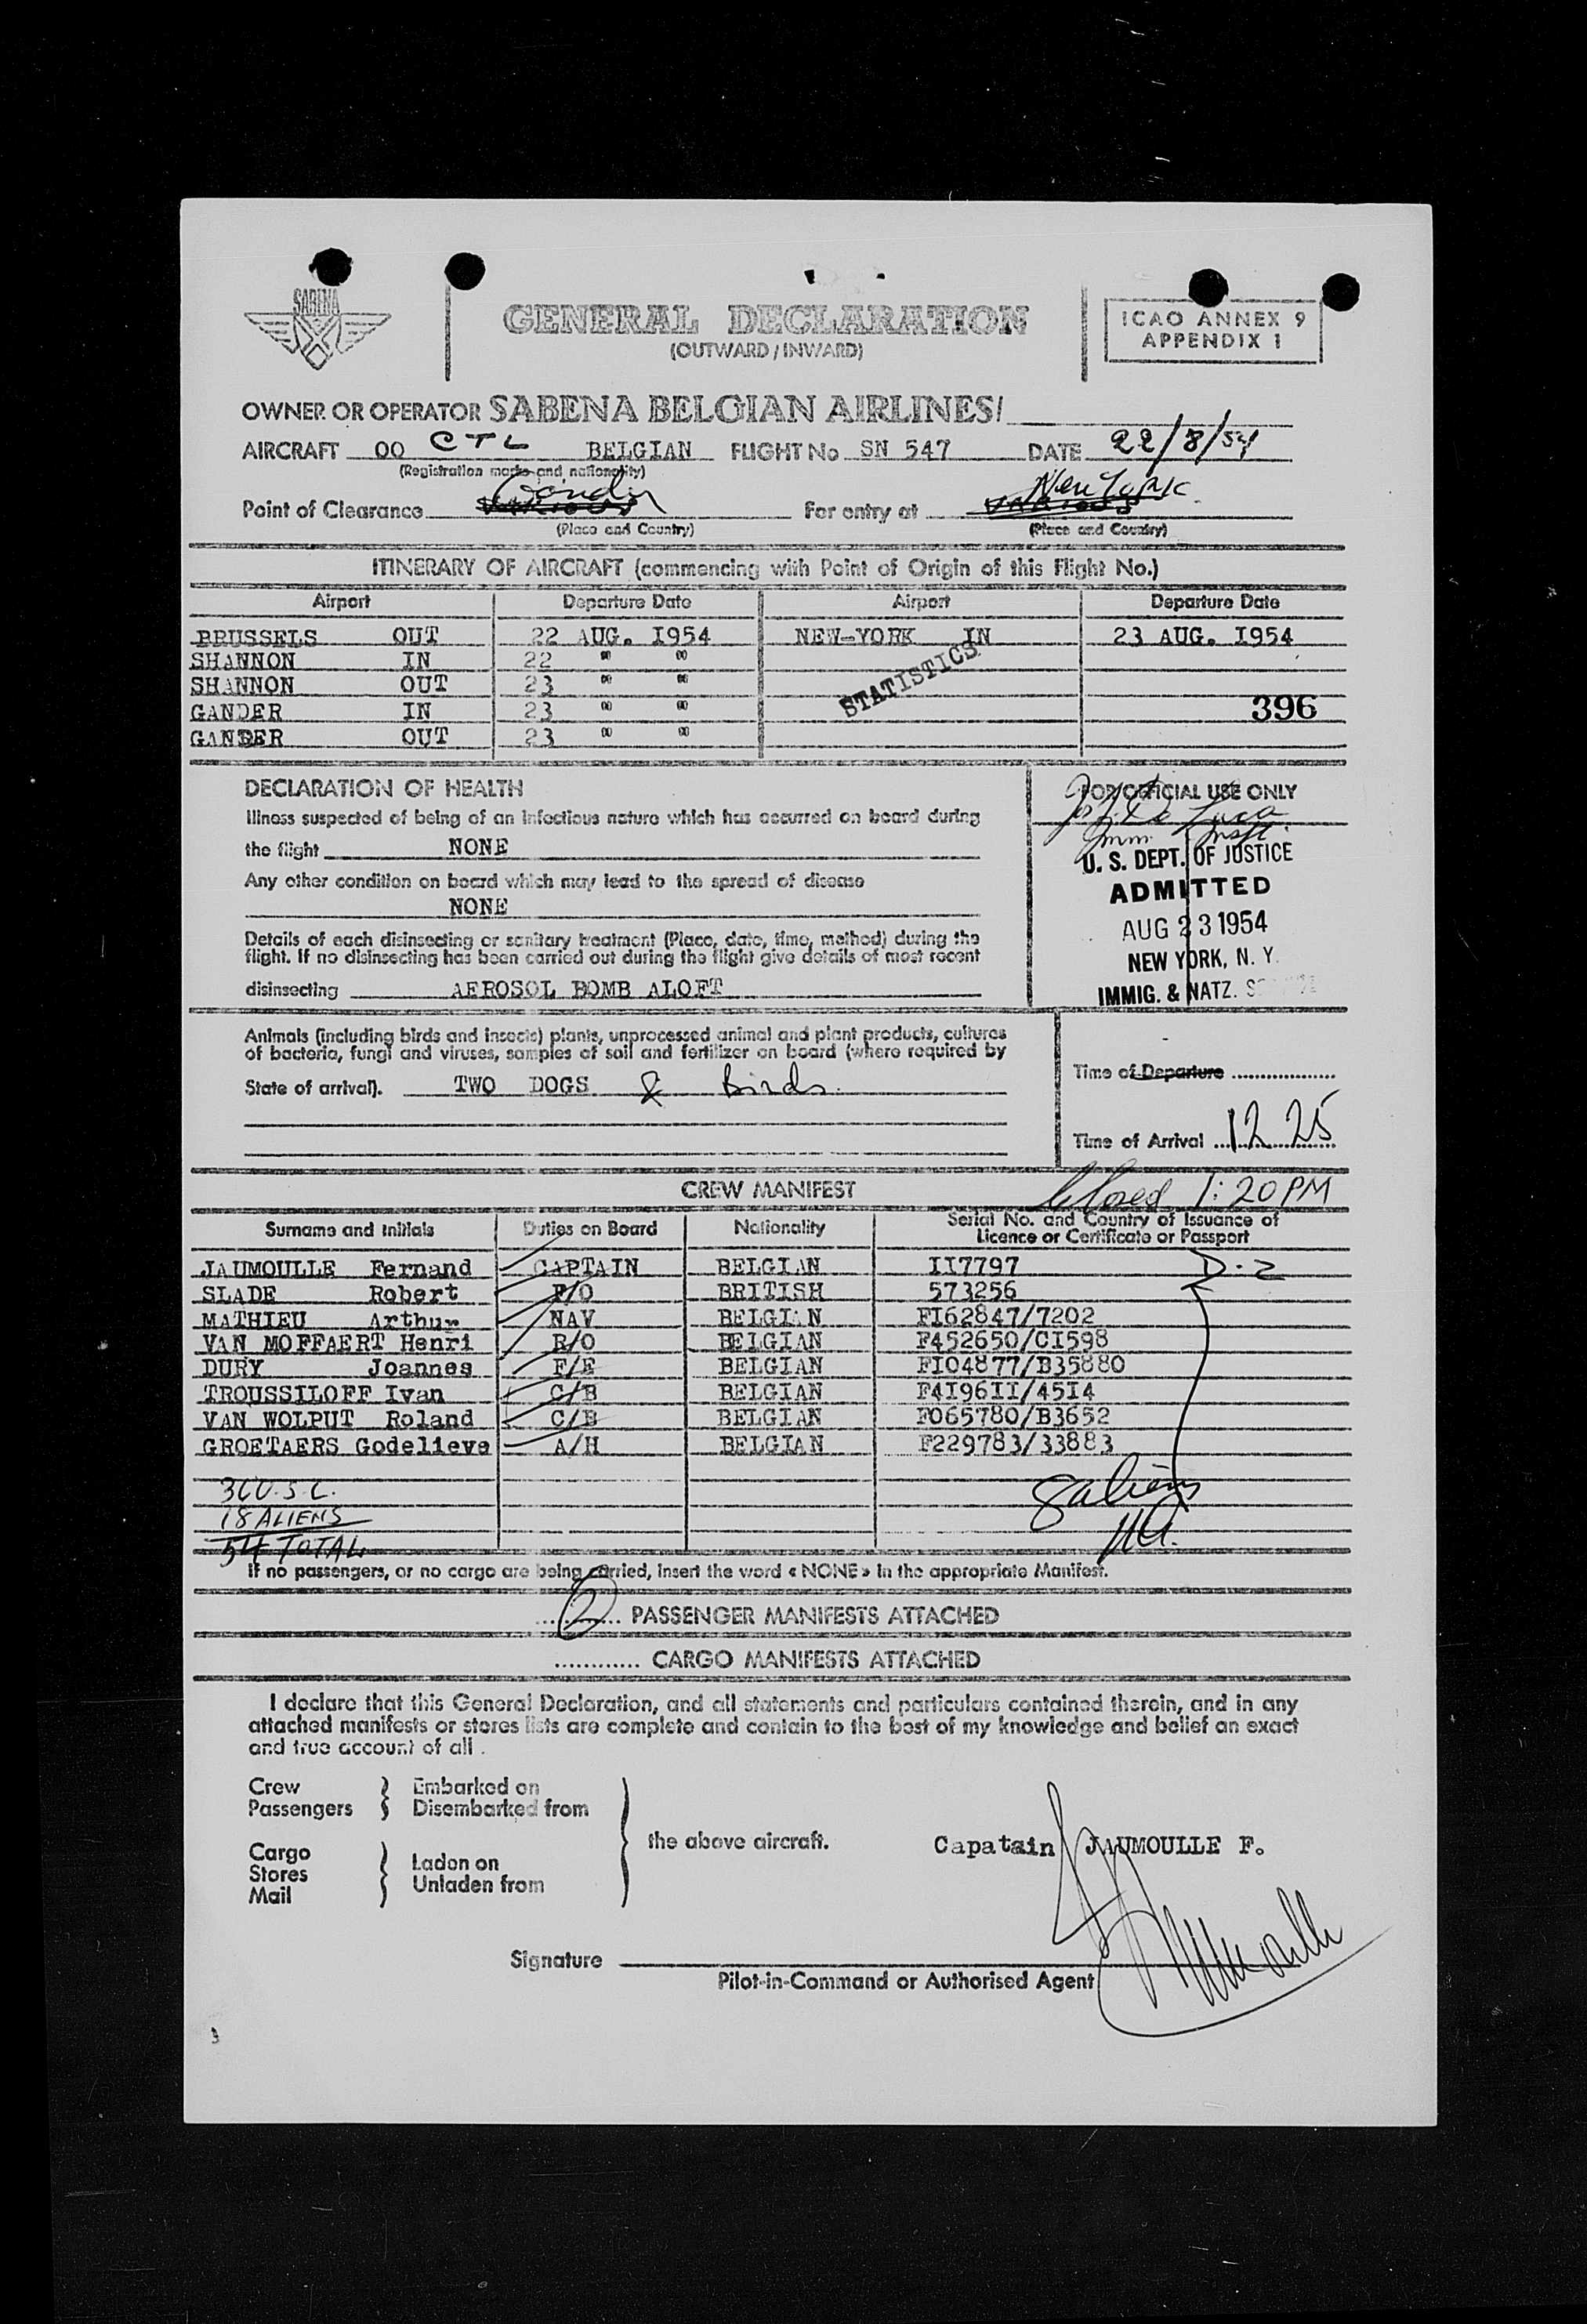 SABENA
GENERAL DECLARATION
(OUTWARD / INWARD)
ICAO ANNEX 9
APPENDIX 1
OWNER OR OPERATOR SABENA BELGIAN AIRLINES/
AIRCRAFT OO CTL BELGIAN FLIGHT No SN 547 DATE 22/8/54
(Registration marks and nationality)
Gander New York
Point of Clearance VARIOUS For entry at VARIOUS
(Place and Country) (Place and Country)
ITINERARY OF AIRCRAFT (commencing with Point of Origin of this Flight No.)
Airport Departure Date Airport Departure Date
BRUSSELS OUT 22 AUG. I954 NEW-YORK IN 23 AUG. I954
SHANNON IN 22 " "
SHANNON OUT 23 " "
STATISTICS
GANDER IN 23 " " 396
GANDER OUT 23 " "
DECLARATION OF HEALTH
Illness suspected of being of an infectious nature which has occurred on board during
the flight NONE
Any other condition on board which may lead to the spread of disease
NONE
Details of each disinsecting or sanitary treatment (Place, date, time, method) during the
flight. If no disinsecting has been carried out during the flight give details of most recent
disinsecting AEROSOL BOMB ALOFT
FOR OFFICIAL USE ONLY
Imm. Inspt.
U. S. DEPT. OF JUSTICE
ADMITTED
AUG 23 1954
NEW YORK, N. Y.
IMMIG. & NATZ.
Animals (including birds and insects) plants, unprocessed animal and plant products, cultures
of bacteria, fungi and viruses, samples of soil and fertilizer on board (where required by
State of arrival). TWO DOGS & Birds.
Time of Departure
Time of Arrival 12 25
CREW MANIFEST
Closed 1:20 PM
Surname and Initials Duties on Board Nationality Serial No. and Country of Issuance of
Licence or Certificate or Passport
JAUMOULLE Fernand CAPTAIN BELGIAN II7797 D-2
SLADE Robert F/O BRITISH 573256
MATHIEU Arthur NAV BELGIAN FI62847/7202
VAN MOFFAERT Henri R/O BELGIAN F452650/CI598
DURY Joannes F/E BELGIAN FI04877/B35880
TROUSSILOFF Ivan C/B BELGIAN F4I96II/45I4
VAN WOLPUT Roland C/B BELGIAN F065780/B3652
GROETAERS Godelieve A/H BELGIAN F229783/33883
36 U.S.C.
18 ALIENS
54 TOTAL
8 aliens
If no passengers, or no cargo are being carried, insert the word « NONE » in the appropriate Manifest.
2 PASSENGER MANIFESTS ATTACHED
............ CARGO MANIFESTS ATTACHED
I declare that this General Declaration, and all statements and particulars contained therein, and in any
attached manifests or stores lists are complete and contain to the best of my knowledge and belief an exact
and true account of all .
Crew Embarked on
Passengers Disembarked from
the above aircraft.
Cargo
Stores Laden on
Mail Unladen from
Capatain JAUMOULLE F.
Signature
Pilot-in-Command or Authorised Agent